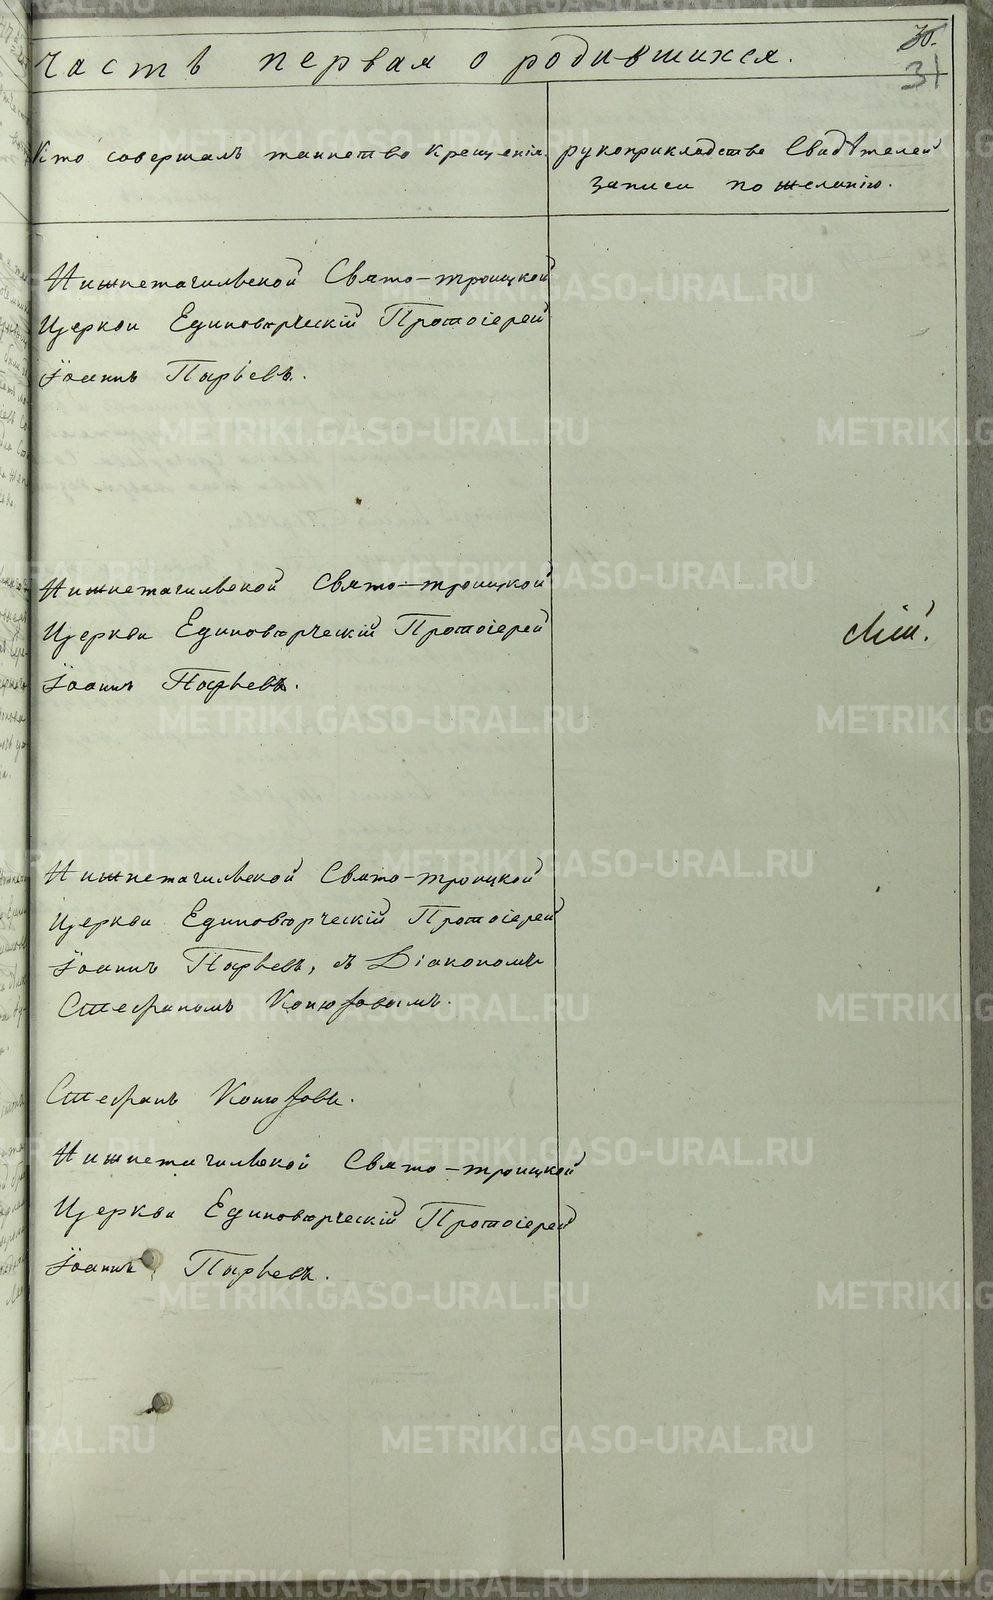 30.
31
Часть первая о родившихся.
Кто совершалъ таинство крещенія.
рукоприкладство Свидѣтелей
записи по желанію.
Нижнетагильской Свято-троицкой
Церкви Единовѣрческій Протоіерей
Іоаннъ Пырьевъ.
Нижнетагильской Свято-троицкой
Церкви Единовѣрческій Протоіерей
Іоаннъ Пырьевъ.
Нижнетагильской Свято-троицкой
Церкви Единовѣрческій Протоіерей
Іоаннъ Пырьевъ, съ Діакономъ
Стефаномъ Конюховымъ.
Стефанъ Конюховъ.
Нижнетагильской Свято-троицкой
Церкви Единовѣрческій Протоіерей
Іоаннъ Пырьевъ.
METRIKI.GASO-URAL.RU